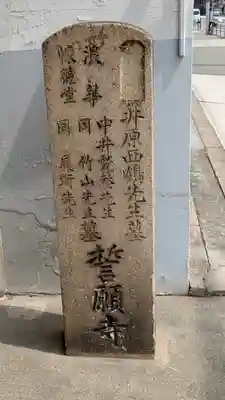 井原西鶴先生墓
中井甃庵先生
浪華 同 竹山先生 墓
懐徳堂 同 履軒先生
誓願寺